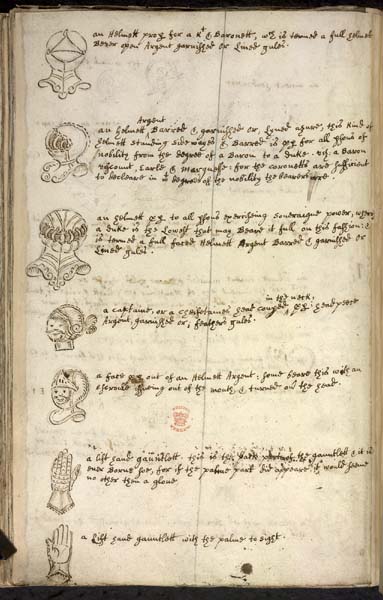 an Helmett prop for a Kt & Baronett, wch is termed a full helmet
Bever open Argent garnished or Lined gules.
Argent
an helmett, Barred & garnished or, Lyned azure, this kind of
helmett standing sidewayes & Barred is for all
nobility from the degree of a Baron to a duke. viz. a Baron
viscount, Earle & Marquesse. for the coronetts are sufficient
to declare in degree of the nobility the bearers are
an helmett to all exercising soveraigne power, where
a duke is the Lowest that may Beare it full on this fashion; &
is termed a full faced Helmett Argent Barred & garnished or
Lined gules.
in the neck,
a captaine, or a cheiftaines head couped headpeece
Argent, garnished or; feathers gules
a face out of an Helmett Argent: some beare this with an
scrowle issueing out of the mouth, & turned over the head.
a lift hand gauntlett this is the back of the gauntlett & it is
ever borne soe, for if the palme part did appeare it would seeme
no other then a glove
a Lift hand gauntlett with the palme to sight.